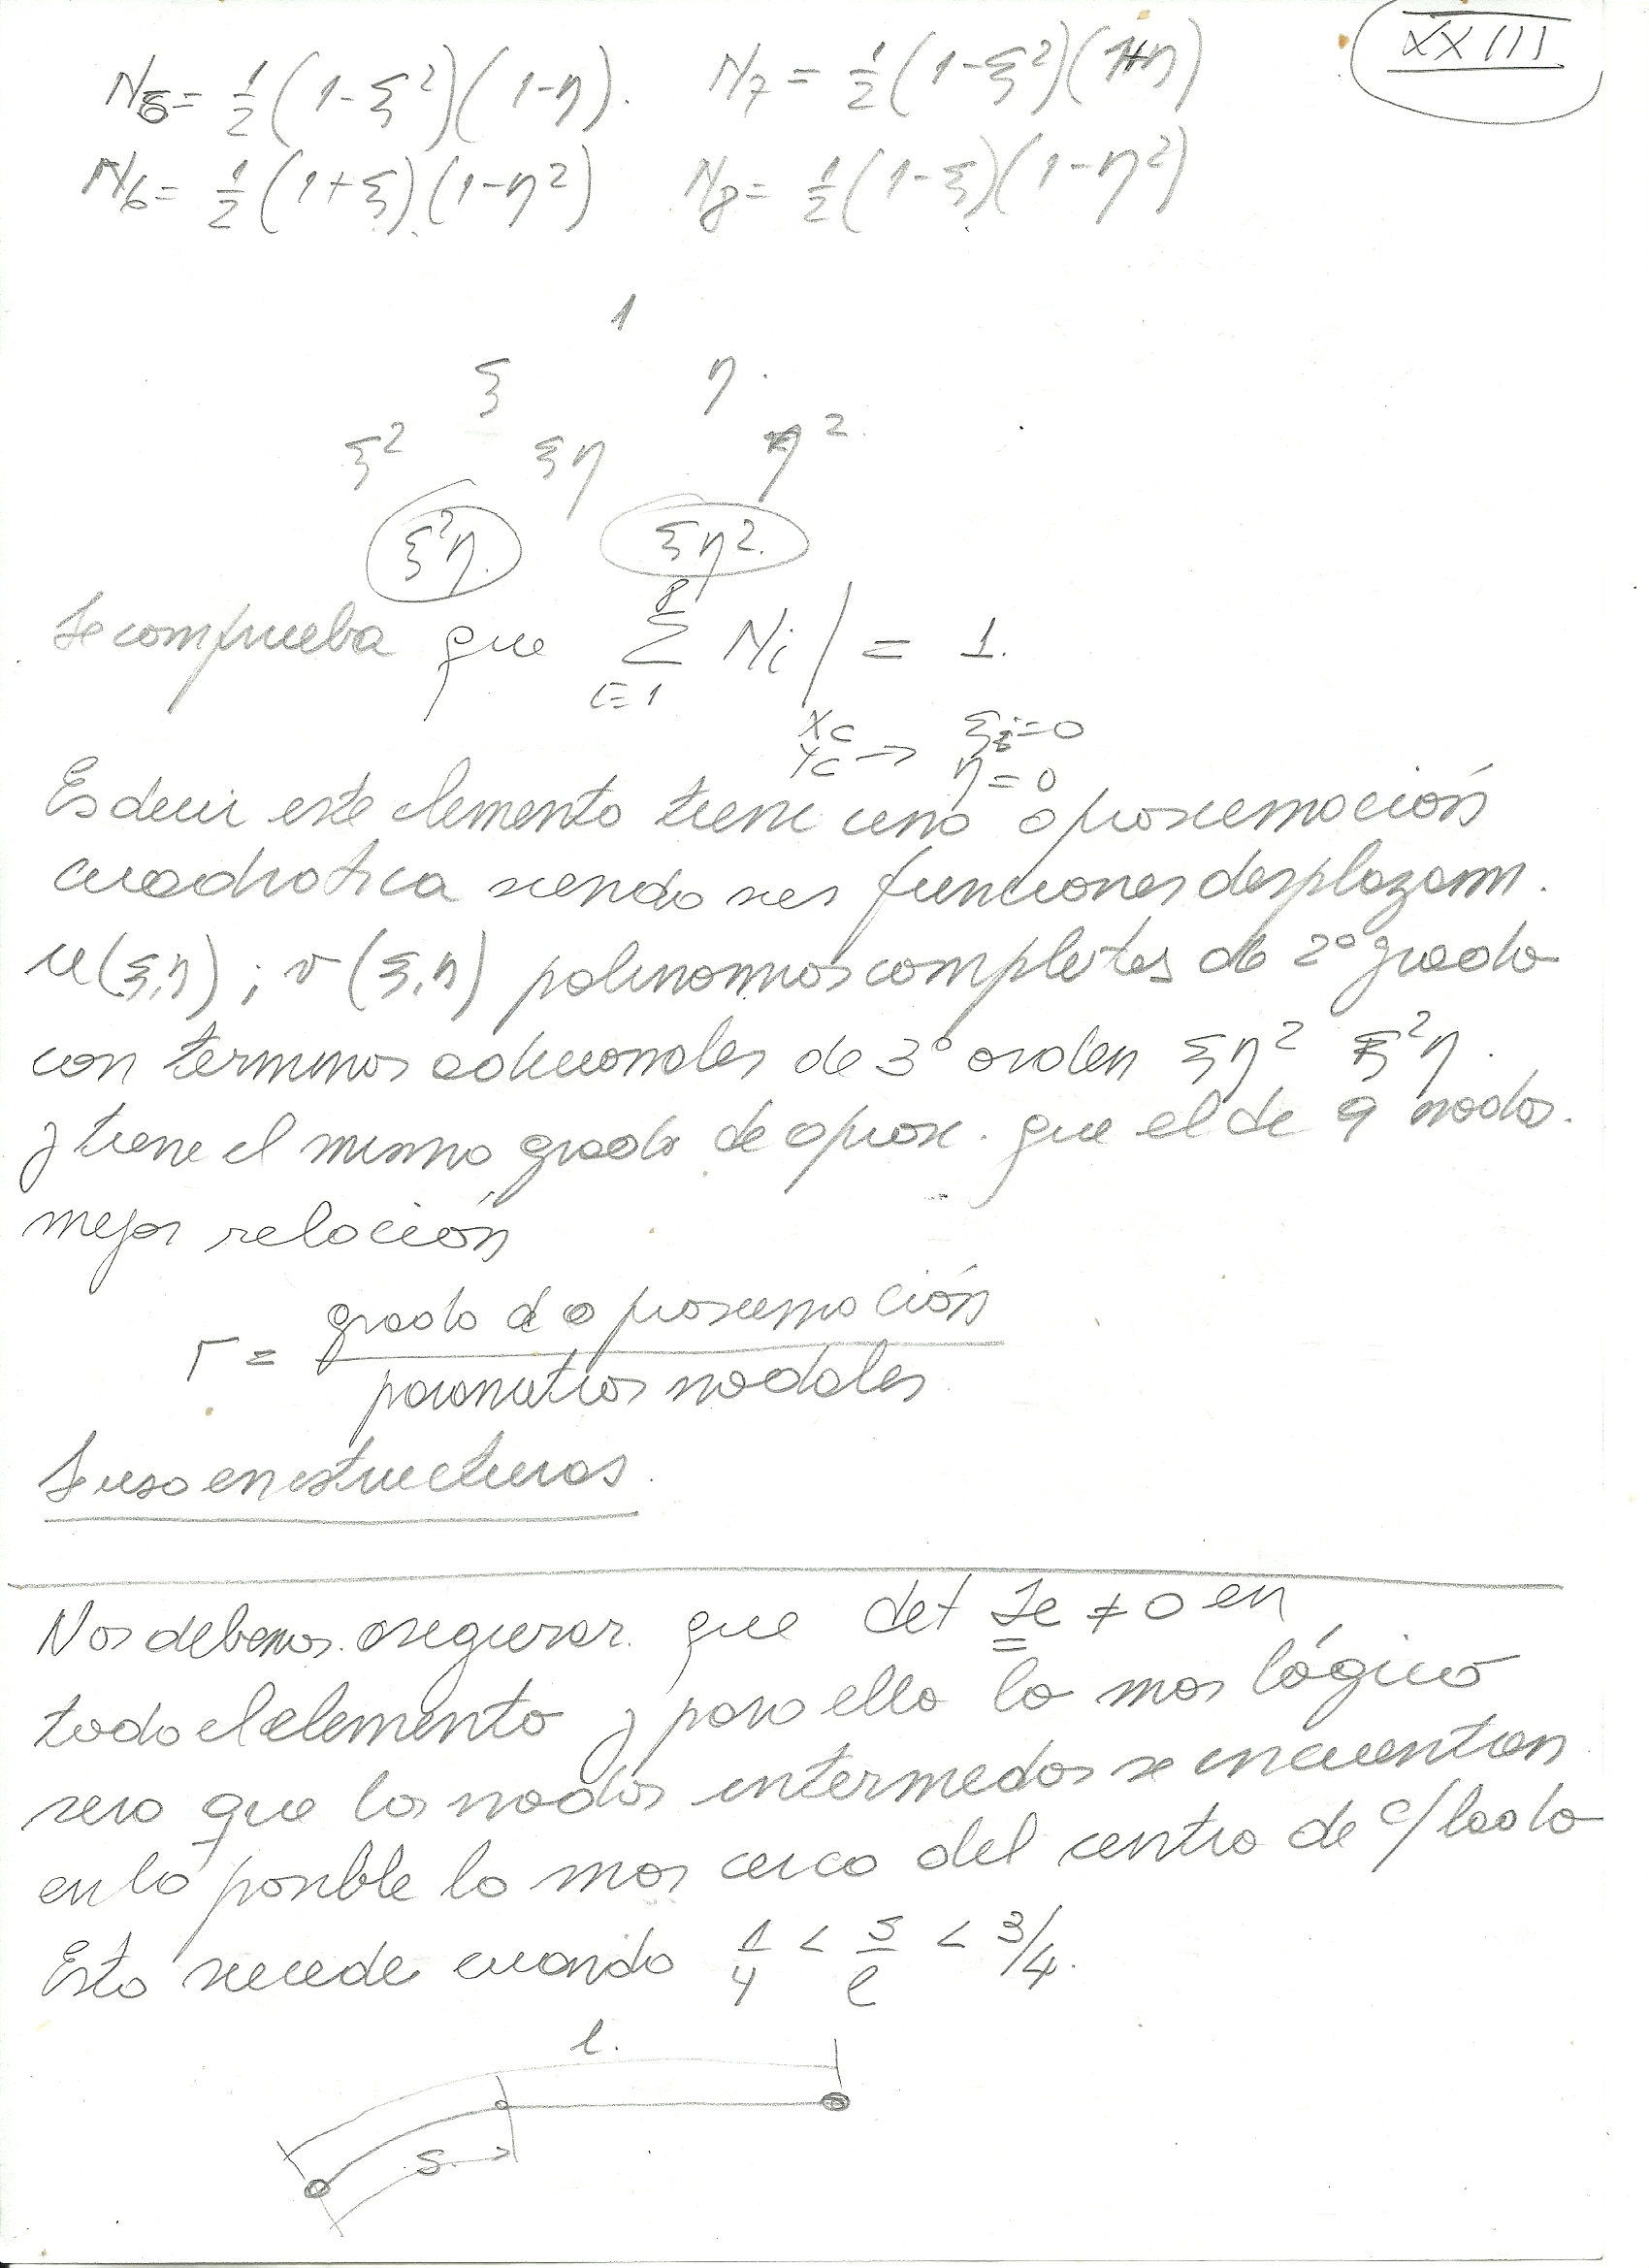 XXIII
N5 = 1/2 (1-ξ²)(1-η). N7 = 1/2 (1-ξ²)(1+η)
N6 = 1/2 (1+ξ)(1-η²) N8 = 1/2 (1-ξ)(1-η²)
1
ξ η.
ξ² ξη η².
ξ²η. ξη².
Se comprueba que Σ Ni | = 1.
8
i=1
xc ξ=0
yc → η=0
Es decir este elemento tiene una aproximación
cuadratica siendo sus funciones desplazam.
u(ξ,η) ; v(ξ,η) polinomios completos de 2º grado
con terminos adicionales de 3º orden ξη² ξ²η.
y tiene el mismo grado de aprox. que el de 9 nodos.
mejor relación
r = grado de aproximación
parametros nodales
Se usa en estructuras.
Nos debemos asegurar que det Je ≠ 0 en
todo el elemento y para ello lo mas lógico
sera que los nodos intermedos se encuentran
en lo posible lo mas cerca del centro de c/ lado
Esto sucede cuando 1/4 < s/l < 3/4.
l.
s.